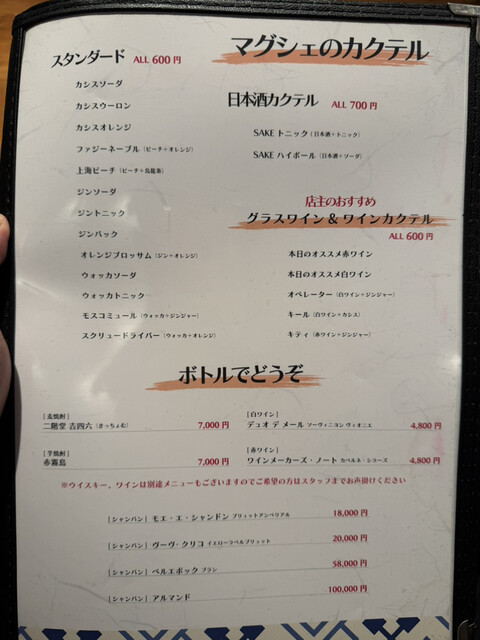 マグシェのカクテル
スタンダード ALL 600 円
カシスソーダ
カシスウーロン
カシスオレンジ
ファジーネーブル (ピーチ+オレンジ)
上海ピーチ (ピーチ+烏龍茶)
ジンソーダ
ジントニック
ジンバック
オレンジブロッサム (ジン+オレンジ)
ウォッカソーダ
ウォッカトニック
モスコミュール (ウォッカ+ジンジャー)
スクリュードライバー (ウォッカ+オレンジ)
日本酒カクテル ALL 700 円
SAKE トニック (日本酒+トニック)
SAKE ハイボール (日本酒+ソーダ)
店主のおすすめ
グラスワイン & ワインカクテル
ALL 600 円
本日のオススメ赤ワイン
本日のオススメ白ワイン
オペレーター (白ワイン+ジンジャー)
キール (白ワイン+カシス)
キティ (赤ワイン+ジンジャー)
ボトルでどうぞ
[麦焼酎]
二階堂 吉四六 (きっちょむ) 7,000 円
[芋焼酎]
赤霧島 7,000 円
[白ワイン]
デュオ デ メール ソーヴィニヨン ヴィオニエ 4,800 円
[赤ワイン]
ワインメーカーズ・ノート カベルネ・シラーズ 4,800 円
※ウイスキー、ワインは別途メニューもございますのでご希望の方はスタッフまでお声掛けください
[シャンパン] モエ・エ・シャンドン ブリュットアンペリアル 18,000 円
[シャンパン] ヴーヴ・クリコ イエローラベルブリュット 20,000 円
[シャンパン] ベルエポック ブラン 58,000 円
[シャンパン] アルマンド 100,000 円